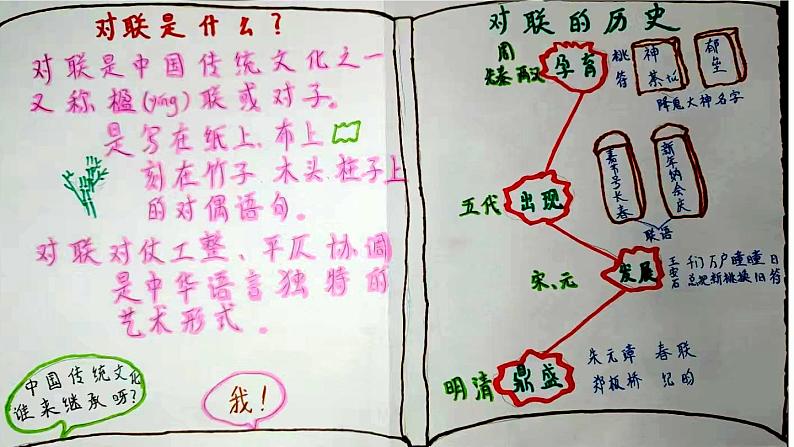 对联是什么？
对联是中国传统文化之一
又称楹(yíng)联或对子。
是写在纸上、布上
刻在竹子 木头 柱子上
的对偶语句。
对联对仗工整、平仄协调
是中华语言独特的
艺术形式。
中国传统文化
谁来继承呀？
我！
对联的历史
周
先秦 两汉
孕育
桃符
神荼
郁垒
降鬼大神名字
五代
出现
嘉节号长春
新年纳余庆
联语
宋、元
发展
王安石
千门万户曈曈日
总把新桃换旧符
明清
鼎盛
朱元璋 春联
郑板桥 纪昀